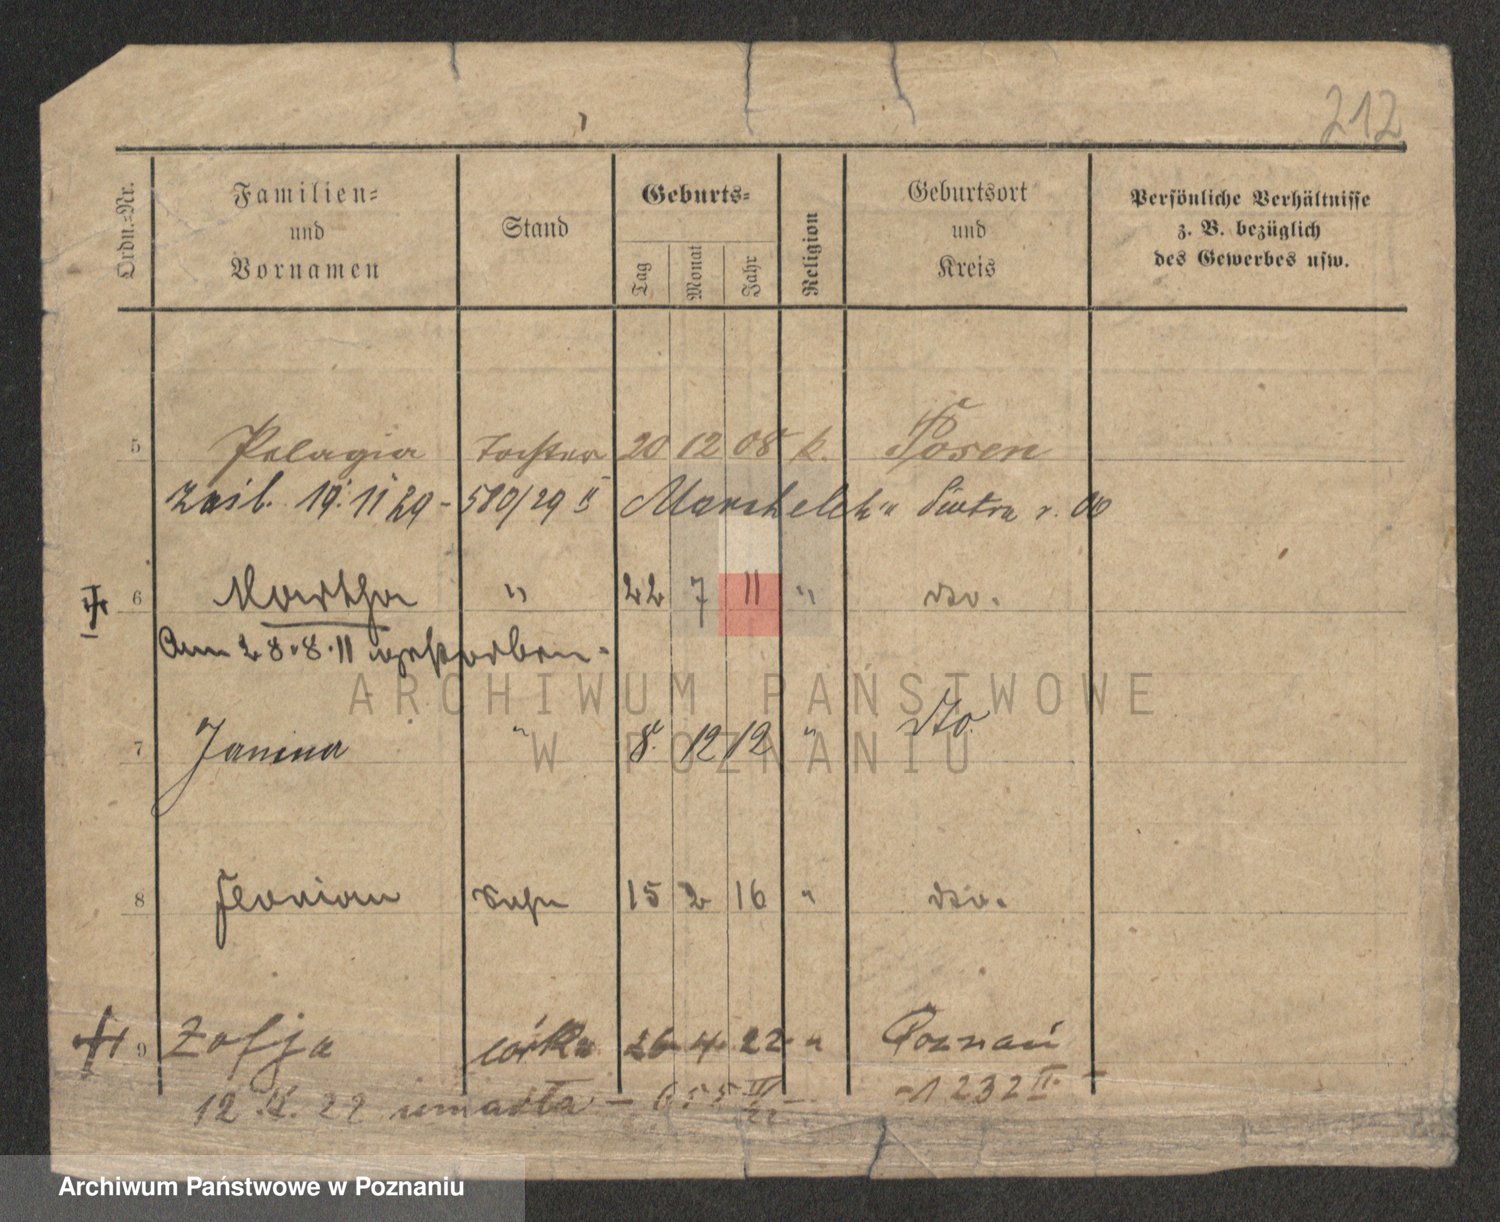 212
Ordn.-Nr.
Familien-
und
Vornamen
Stand
Geburts-
Tag
Monat
Jahr
Religion
Geburtsort
und
Kreis
Persönliche Verhältnisse
z. B. bezüglich
des Gewerbes usw.
5 Pelagia Tochter 20 12 08 k. Posen
19.11 29 - 580/29 II
6 Martha " 22 7 11 " dto.
Am 28.8.11 gestorben.
7 Janina " 8. 12 12 " dto.
8 Florian Sohn 15 2 16 " dto.
9 Zofja córka 26 4 22 " Poznań
umarła - 1232 II -
ARCHIWUM PAŃSTWOWE
W POZNANIU
Archiwum Państwowe w Poznaniu